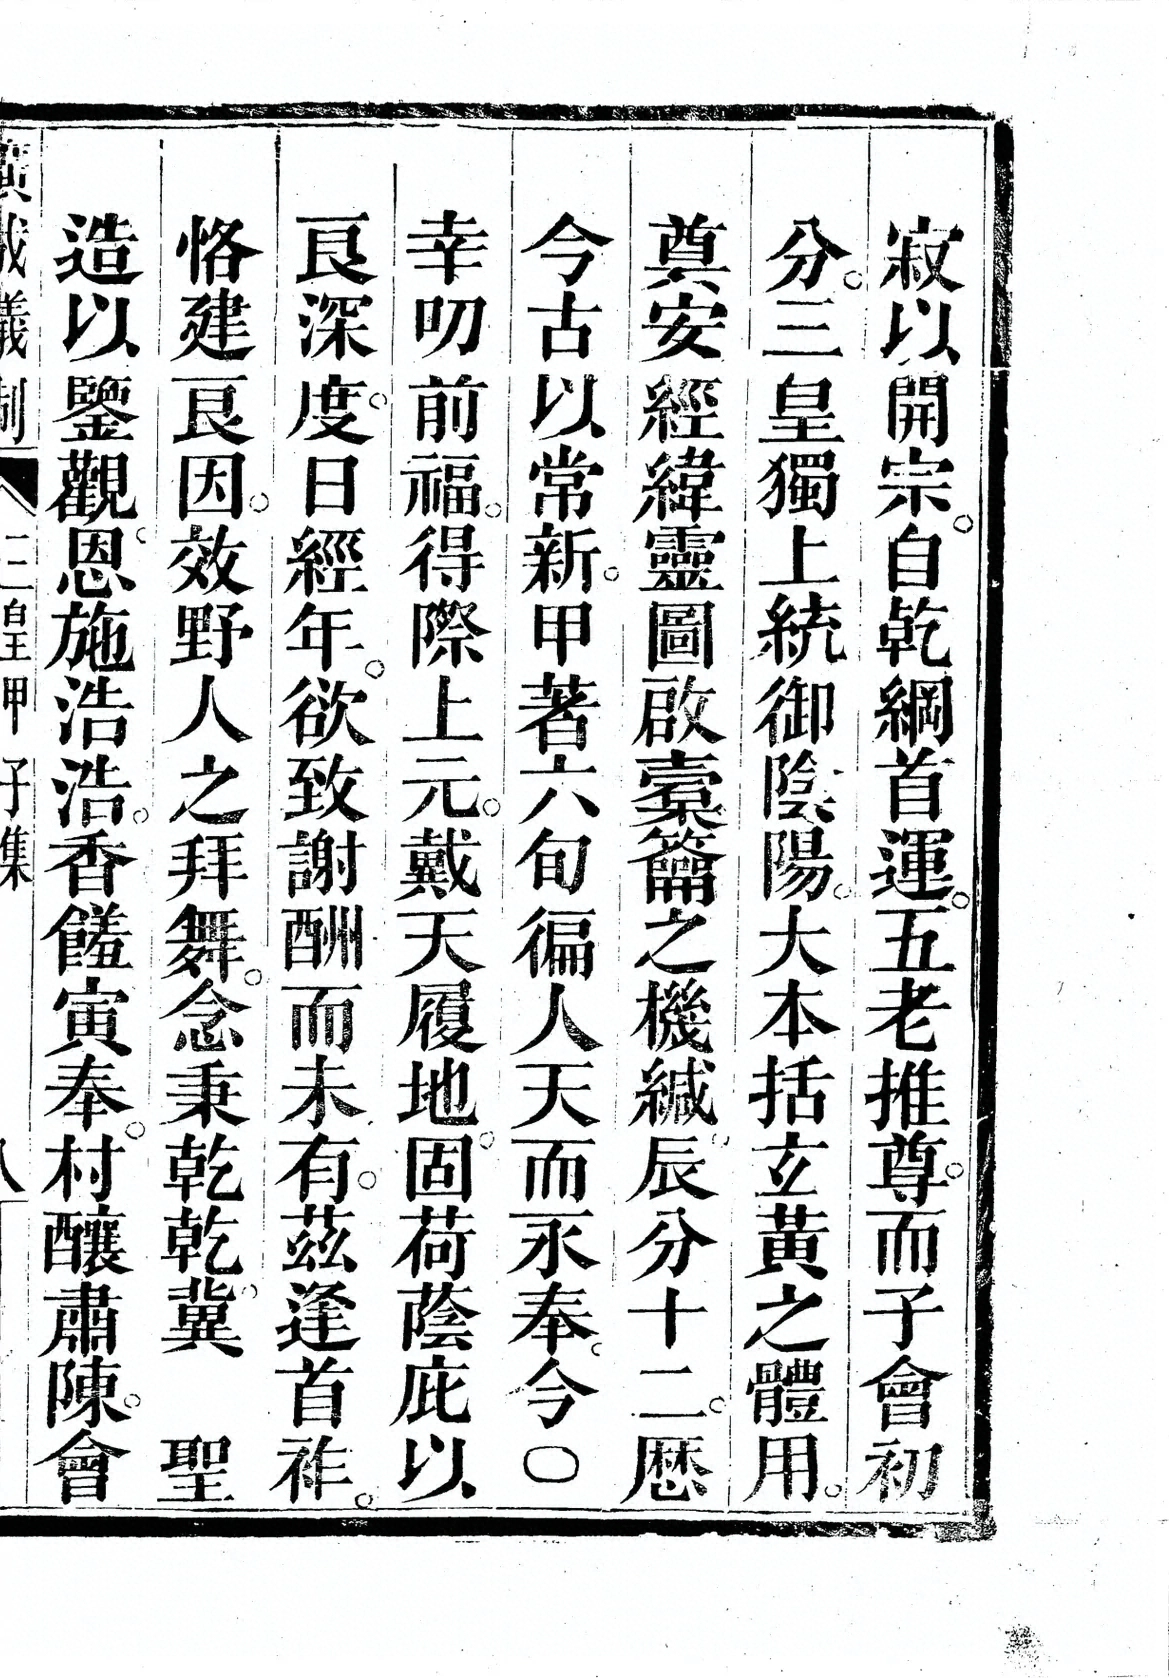 寂以開宗。自乾綱首運。五老推尊。而子會初
分。三皇獨上統御陰陽。大本括玄黃之體用。
奠安經緯靈圖啟橐籥之機緘。辰分十二。歷
今古以常新。甲著六旬徧人天而永奉。今〇
幸叨前福。得際上元。戴天履地。固荷蔭庇以
良深度。日經年。欲致謝酬而未有。茲逢首祚。
恪建良因。效野人之拜舞。念秉乾乾。冀　聖
造以鑒觀。恩施浩浩。香饈寅奉。村釀肅陳。會
廣成儀制　三皇甲子集　八